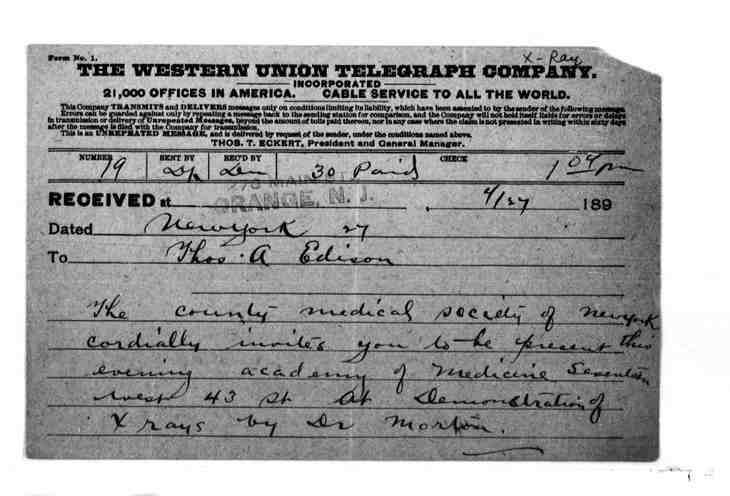 X-Ray
Form No. 1.
THE WESTERN UNION TELEGRAPH COMPANY.
INCORPORATED
21,000 OFFICES IN AMERICA. CABLE SERVICE TO ALL THE WORLD.
This Company TRANSMITS and DELIVERS messages only on conditions limiting its liability, which have been assented to by the sender of the following message.
Errors can be guarded against only by repeating a message back to the sending station for comparison, and the Company will not hold itself liable for errors or delays
in transmission or delivery of Unrepeated Messages, beyond the amount of tolls paid thereon, nor in any case where the claim is not presented in writing within sixty days
after the message is filed with the Company for transmission.
This is an UNREPEATED MESSAGE, and is delivered by request of the sender, under the conditions named above.
THOS. T. ECKERT, President and General Manager.
NUMBER SENT BY REC'D BY CHECK
19 30 Paid 1 04 pm
MAIN
RECEIVED at ORANGE, N. J. 4/27 189
Dated New York 27
To Thos. A Edison
The county medical society of New York
cordially invites you to be present this
evening academy of Medicine Seventeen
west 43 st at Demonstration of
X rays by Dr Morton.